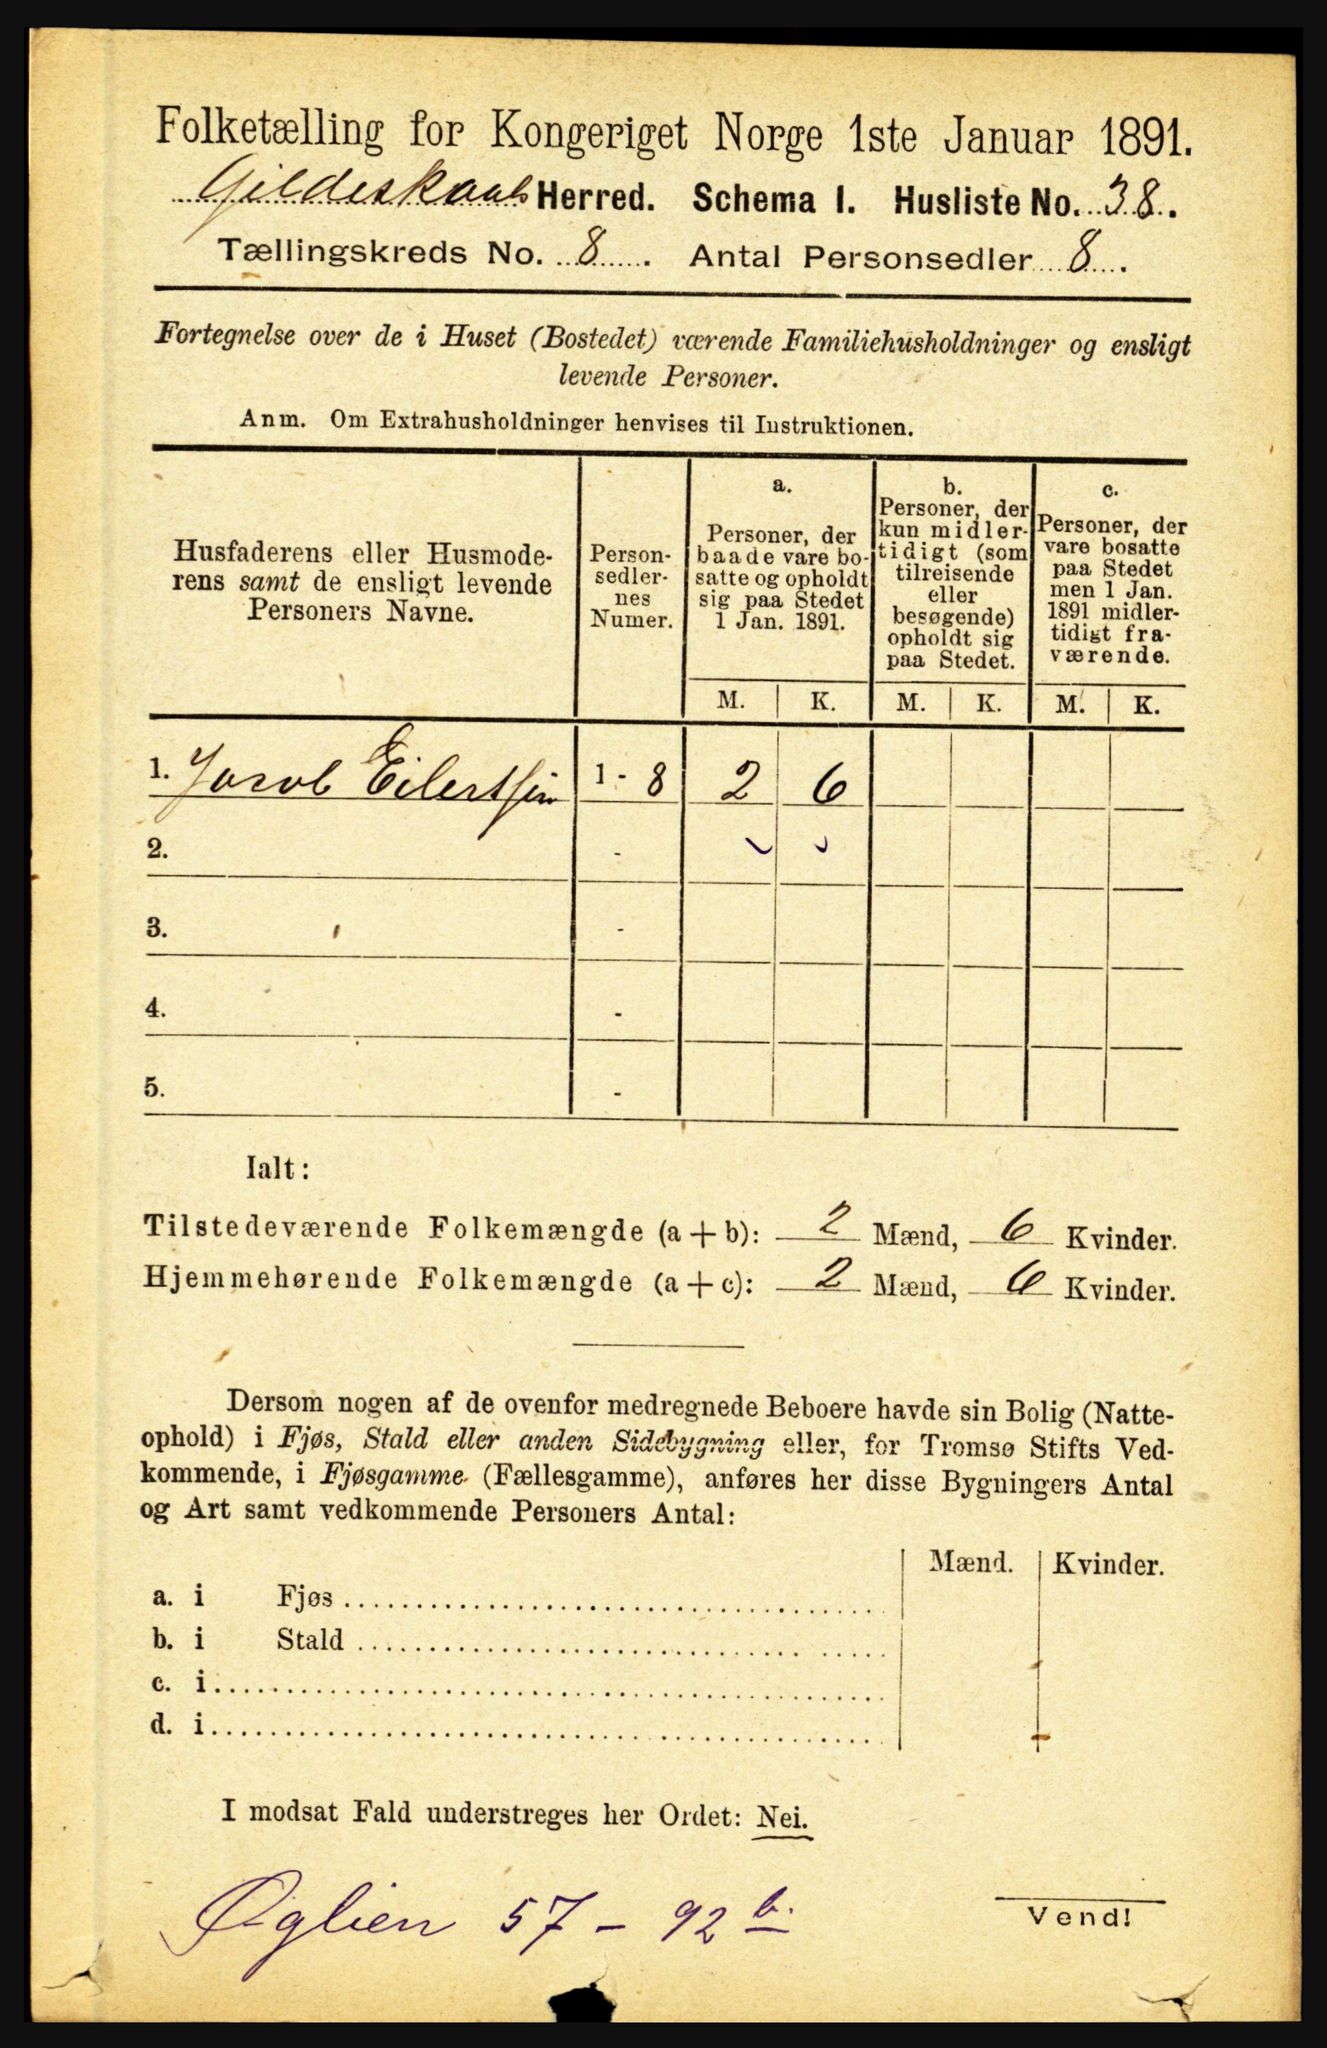 Folketælling for Kongeriget Norge 1ste Januar 1891.
Gildeskaals Herred. Schema I. Husliste No. 38.
Tællingskreds No. 8. Antal Personsedler 8.
Fortegnelse over de i Huset (Bostedet) værende Familiehusholdninger og ensligt
levende Personer.
Anm. Om Extrahusholdninger henvises til Instruktionen.
Husfaderens eller Husmode-
rens samt de ensligt levende
Personers Navne.
Person-
sedler-
nes
Numer.
a.
Personer, der
baade vare bo-
satte og opholdt
sig paa Stedet
1 Jan. 1891.
b.
Personer, der
kun midler-
tidigt (som
tilreisende
eller
besøgende)
opholdt sig
paa Stedet.
c.
Personer, der
vare bosatte
paa Stedet
men 1 Jan.
1891 midler-
tidigt fra-
værende.
M. K. M. K. M. K.
1. Jacob Eilertsen 1 - 8 2 6
2. -
3. -
4. -
5. -
Ialt:
Tilstedeværende Folkemængde (a + b): 2 Mænd, 6 Kvinder.
Hjemmehørende Folkemængde (a + c): 2 Mænd, 6 Kvinder.
Dersom nogen af de ovenfor medregnede Beboere havde sin Bolig (Natte-
ophold) i Fjøs, Stald eller anden Sidebygning eller, for Tromsø Stifts Ved-
kommende, i Fjøsgamme (Fællesgamme), anføres her disse Bygningers Antal
og Art samt vedkommende Personers Antal:
Mænd. Kvinder.
a. i Fjøs
b. i Stald
c. i
d. i
I modsat Fald understreges her Ordet: Nei.
Øglien 57 - 92 b.
Vend!